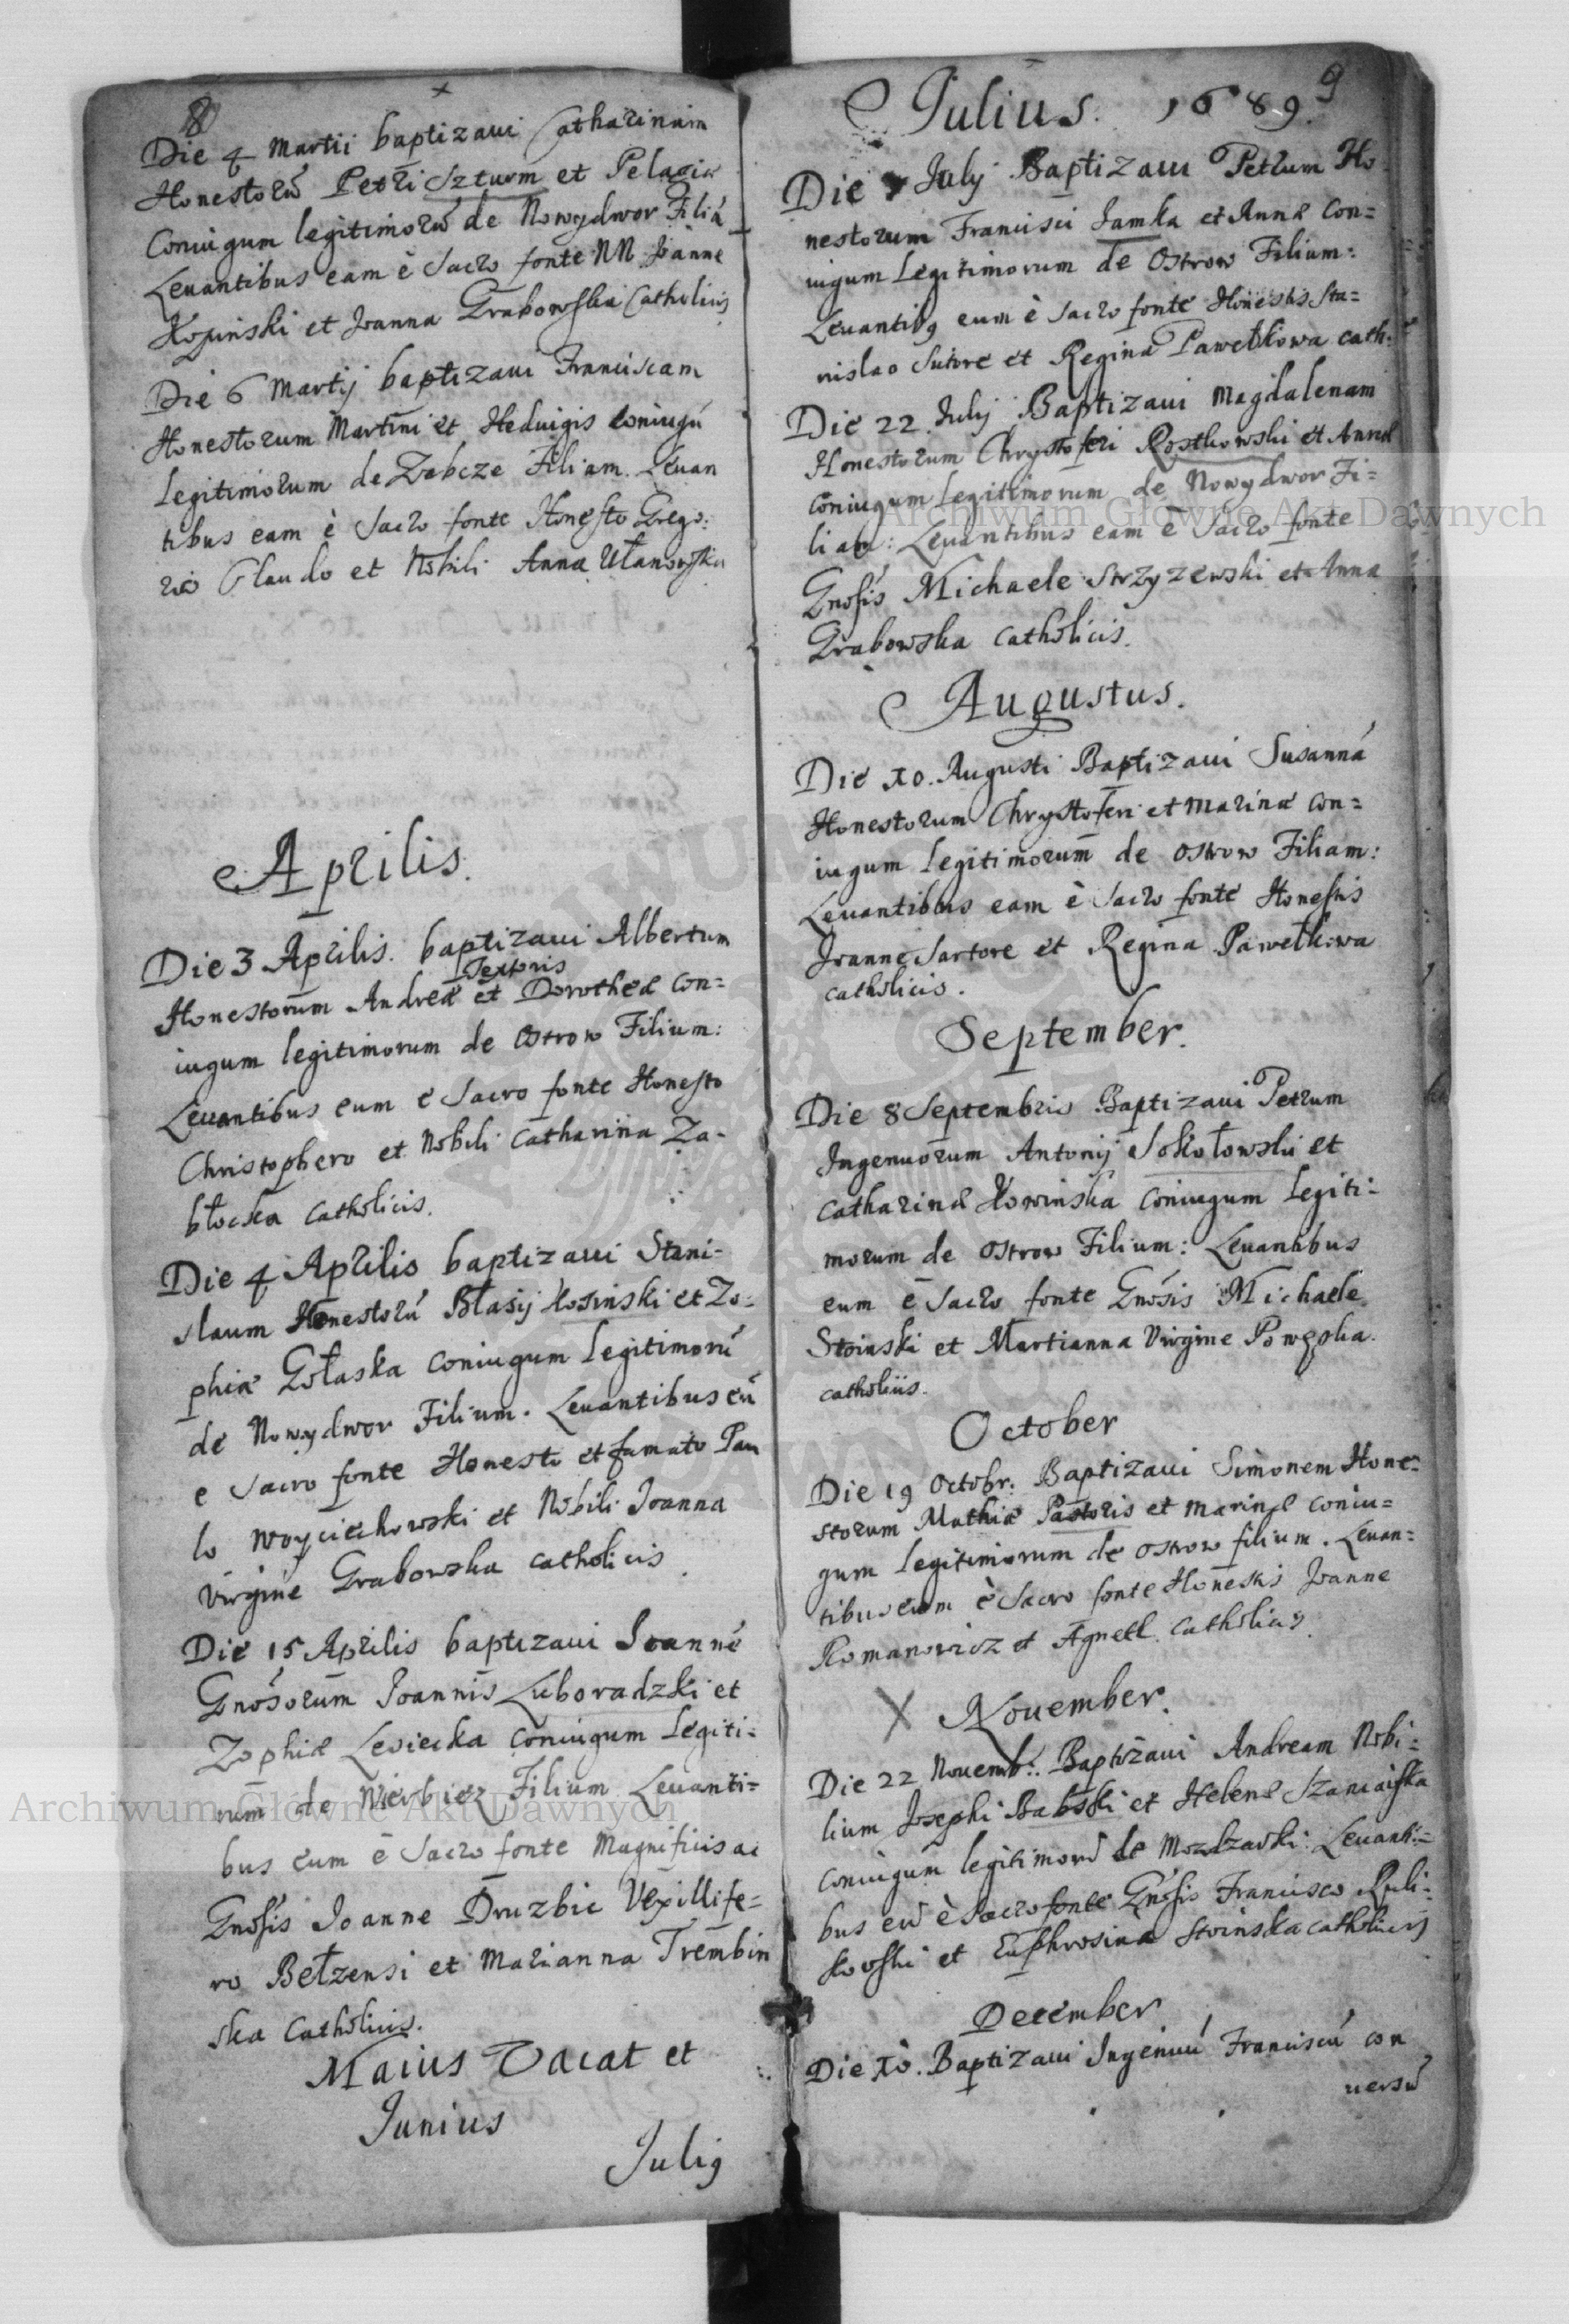 8
Die 4 Martii baptizaui Catharinam
Honestorũ Petri Szturm et Pelagiæ
Coniugum legitimorũ de Nowydwor Filiã
Leuantibus eam è Sacro fonte NN Joanne
Kozinski et Joanna Grabowska Catholicis
Die 6 Martij baptizaui Franciscam
Honestorum Martini et Heduigis coniugũ
Legitimorum de Zabcze Filiam. Leuan
tibus eam è Sacro fonte Honesto Grego:
rio Claudo et Nobili Anna Ułanowska
Aprilis.
Die 3 Aprilis. baptizaui Albertum
Textoris
Honestorum Andreæ et Dorotheæ Con=
iugum legitimorum de Ostrow Filium:
Leuantibus eum e Sacro fonte Honesto
Christophero et Nobili Catharina Za-
błocka Catholicis.
Die 4 Aprilis baptizaui Stani-
slaum Honestorũ Błasij Kosinski et Zo-
phiæ Gołaska Coniugum Legitimorũ
de Nowydwor Filium. Leuantibus eũ
e Sacro fonte Honesto et famato Pau
lo Woyciechowski et Nobili Joanna
Virgine Grabowska Catholicis.
Die 15 Aprilis baptizaui Joannẽ
Gnõsorum Joannis Luboradzki et
Zophiæ Lesiecka Coniugum Legiti=
rum de Wierbicz Filium Leuanti=
bus eum è Sacro fonte Magnificis ac
Gnõsis Joanne Druzbic Vexillife=
ro Bełzensi et Marianna Trembin
ska Catholicis.
Maius Vacat et
Junius
Julig
9
Julius. 1689.
Die July Baptizaui Petrum Ho
nestorum Francisci Jamka et Annæ Con=
iugum Legitimorum de Ostrow Filium:
Leuantibg eum è Sacro fonte Honestis Sta=
nislao Sutore et Regina Pawełkowa cath:
Die 22. July Baptizaui Magdalenam
Honestorum Chrystoferi Rostkowski et Annæ
Coniugum Legitimorum de Nowydwor Fi=
liam: Leuantibus eam è Sacro fonte
Gnosis Michaele Strzyzewski et Anna
Grabowska Catholicis.
Augustus.
Die X0. Augusti Baptizaui Susannã
Honestorum Chrystoferi et Marinæ Con=
iugum Legitimorum de Ostrow Filiam:
Leuantibus eam è Sacro fonte Honestis
Joanne Sartore et Regina Pawełkowa
Catholicis.
September.
Die 8 Septembris Baptizaui Petrum
Ingenuorum Antonij Sokołowski et
Catharinæ Kowinska Coniugum Legiti-
morum de Ostrow Filium: Leuantibus
eum è Sacro fonte Gnõsis Michaele
Stoinski et Martianna Virgine Powęska.
Catholicis.
October
Die 19 Octobr: Baptizaui Simonem Hone-
storum Mathiæ Pastoris et Marinæ Coniu=
gum Legitimorum de Ostrow filium. Leuan=
tibus eum è Sacro fonte Honestis Joanne
Romanowicz et Agnete Catholicis.
X November.
Die 22 Nouemb:. Baptizaui Andream Nobi=
lium Josephi Babski et Helenæ Szaniawska
Coniugum legitimorũ de Mozdzaski: Leuanti=
bus eũ è Sacro fonte Gnõsis Francisco Ruli-
kowski et Euphrosina Stoinska Catholicis
December
Die X0. Baptizaui Ingenuũ Franciscũ con
uersũ
Archiwum Główne Akt Dawnych
Archiwum Główne Akt Dawnych